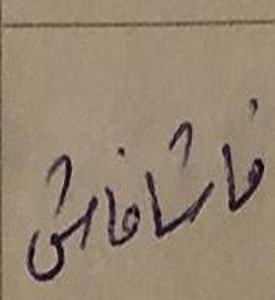 فاشافاش